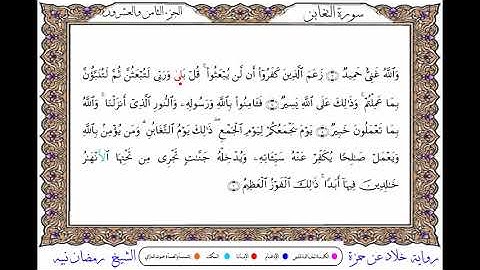 سورة التغابن
الجزء الثامن والعشرون
وَٱللَّهُ غَنِيٌّ حَمِيدٌ ۝ زَعَمَ ٱلَّذِينَ كَفَرُوٓا۟ أَن لَّن يُبْعَثُوا۟ ۚ قُلْ بَلَىٰ وَرَبِّى لَتُبْعَثُنَّ ثُمَّ لَتُنَبَّؤُنَّ
بِمَا عَمِلْتُمْ ۚ وَذَٰلِكَ عَلَى ٱللَّهِ يَسِيرٌ ۝ فَـَٔامِنُوا۟ بِٱللَّهِ وَرَسُولِهِۦ وَٱلنُّورِ ٱلَّذِىٓ أَنزَلْنَا ۚ وَٱللَّهُ
بِمَا تَعْمَلُونَ خَبِيرٌ ۝ يَوْمَ يَجْمَعُكُمْ لِيَوْمِ ٱلْجَمْعِ ۖ ذَٰلِكَ يَوْمُ ٱلتَّغَابُنِ ۗ وَمَن يُؤْمِنۢ بِٱللَّهِ
وَيَعْمَلْ صَـٰلِحًا يُكَفِّرْ عَنْهُ سَيِّـَٔاتِهِۦ وَيُدْخِلْهُ جَنَّـٰتٍ تَجْرِى مِن تَحْتِهَا ٱلْأَنْهَـٰرُ
خَـٰلِدِينَ فِيهَآ أَبَدًا ۚ ذَٰلِكَ ٱلْفَوْزُ ٱلْعَظِيمُ ۝
رواية خلاد عن حمزة
الشيخ رمضان نبيه